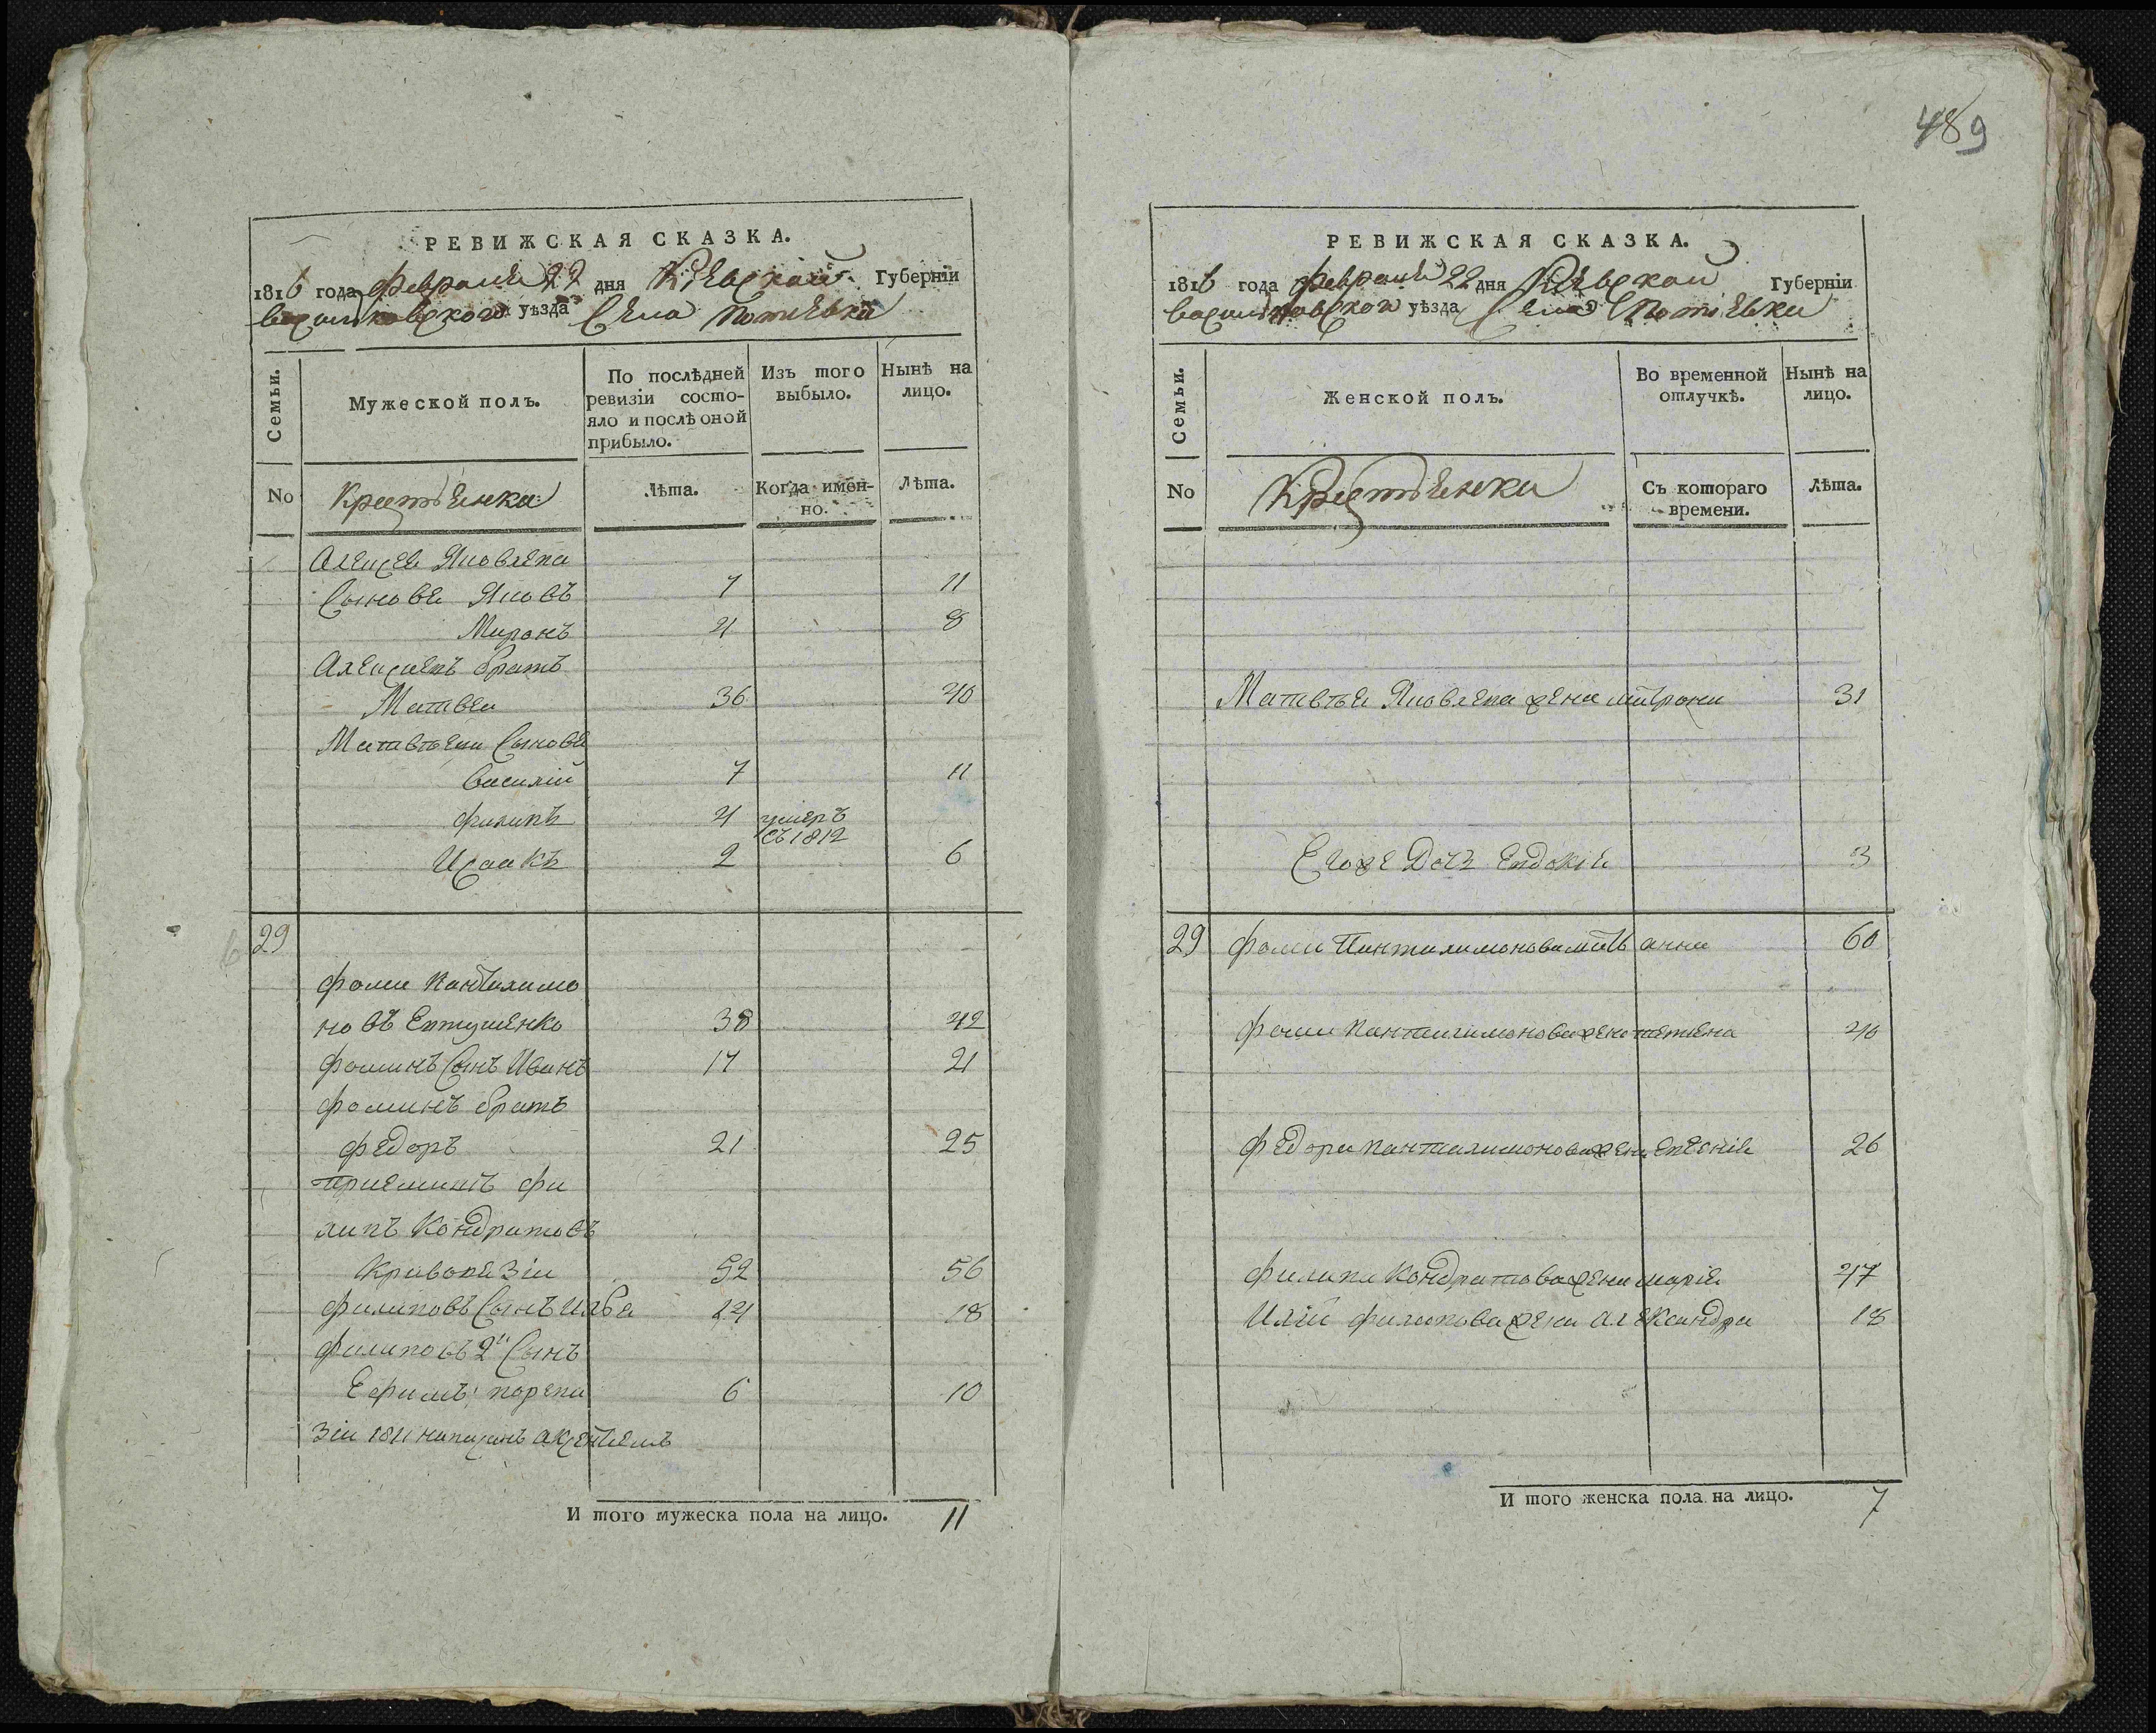 РЕВИЖСКАЯ СКАЗКА.
1816 года февраля 22 дня Кіевской Губерніи
васильковского уѣзда Села Потіевки
Семьи.
Мужеской полъ.
По послѣдней ревизіи состояло и послѣ оной прибыло.
Изъ того выбыло.
Нынѣ на лицо.
No
Крестьянка
Лѣта.
Когда именно.
Лѣта.
Алексея Яковлева
Сыновья Яковъ 7 11
Миронъ 4 8
Алексеевъ братъ
Матвеи 36 40
Матвѣевы Сыновья
Василій 7 11
Филипъ 4 умеръ съ 1812
Исаакъ 2 6
29
Фома Пантилимо
новъ Евтушенко 38 42
Фоминъ Сынъ Иванъ 17 21
Фоминъ братъ
Федоръ 21 25
Приемышъ Фи
липъ Кондратовъ
52 56
Филиповъ Сынъ Илья 14 18
Филиповъ 2й Сынъ
Ефимъ по реви 6 10
зіи 1811 написанъ
И того мужеска пола на лицо. 11
489
РЕВИЖСКАЯ СКАЗКА.
1816 года февраля 22 дня Кіевской Губерніи
васильковской уѣзда Села Потіевки
Семьи.
Женской полъ.
Во временной отлучкѣ.
Нынѣ на лицо.
No
Крестьянки
Съ котораго времени.
Лѣта.
Матвѣя Яковлева жена 31
Его же Дочь Евдокія 3
29 Фомы Пантилимонова мать анна 60
Фомы Пантилимонова жена 40
Федора Пантилимонова жена 26
Филипа Кондратова жена марія 47
Иліи Филипова жена александра 18
И того женска пола на лицо. 7